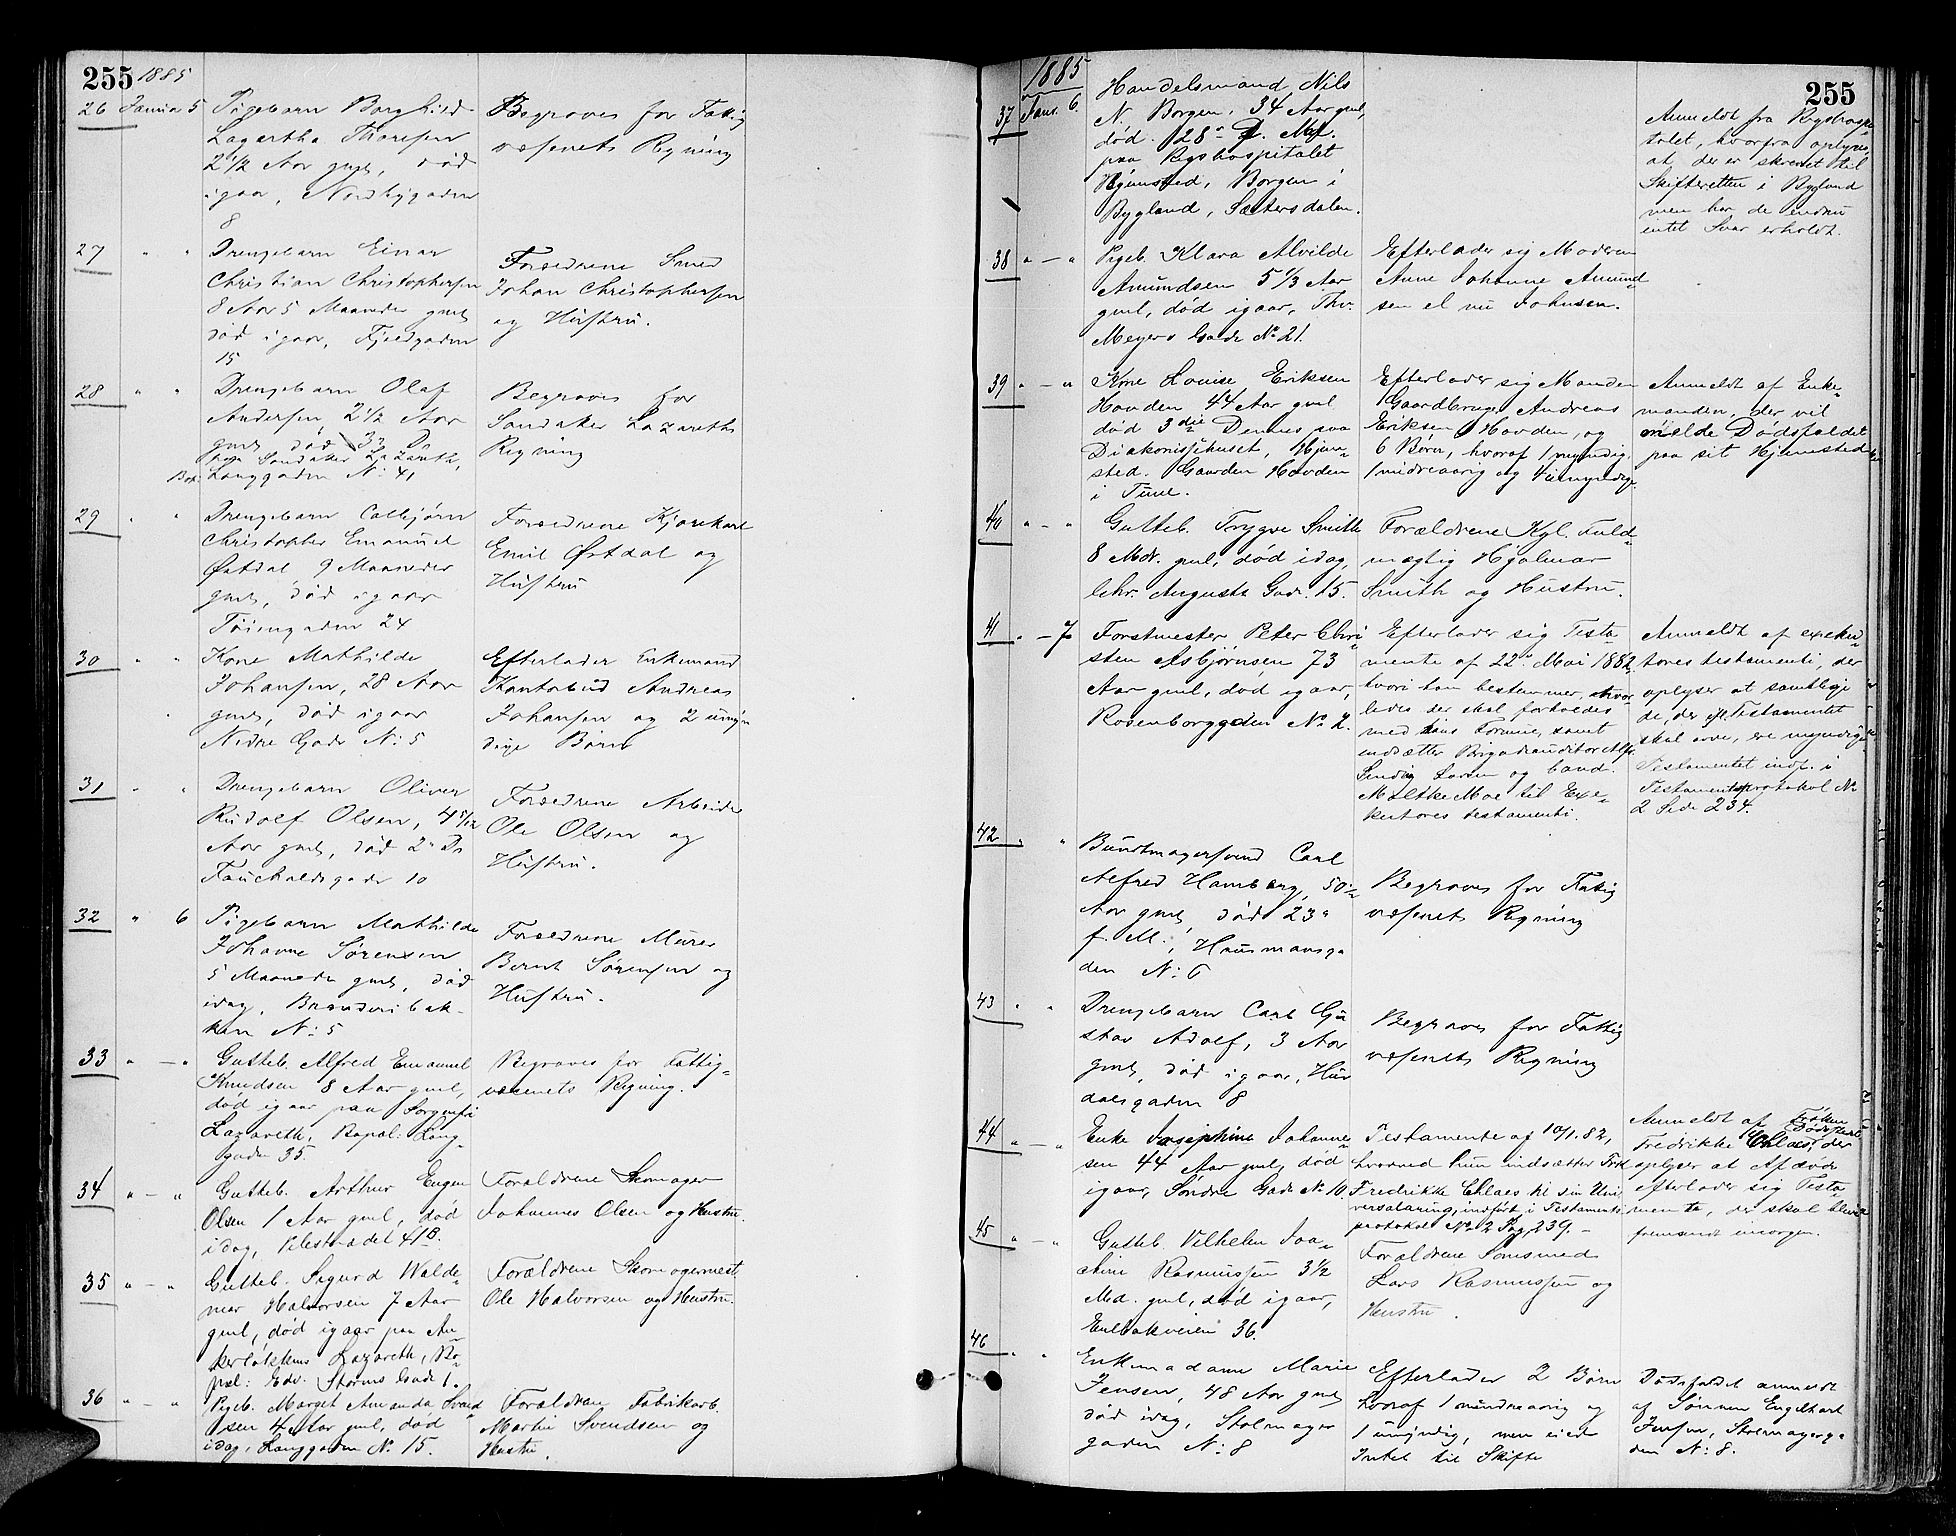 255 1885
26 Januar 5 Pigebarn Borghild
Lagertha Thoresen
2 1/2 Aar gml, død
igaar, Nordbygaden
8
Begraves for Fattig
væsenets Regning
27 " " Drengebarn Einar
Christian Christophersen
8 Aar 5 Maaneder gml
død igaar, Fjeldgaden
15
Forældrene Smed
Johan Christophersen
og Hustru.
28 " " Drengebarn Olaf
Andersen, 2 1/2 Aar
gml, død 3die Ds
paa Sandaker Lazareth,
Bop: Langgaden No: 41
Begraves for
Sandaker Lazareths
Regning
29 " " Drengebarn Colbjørn
Christopher Emanuel
Østdal 9 Maaneder
gml, død igaar
Tøiengaden 24
Forældrene Kjørekarl
Emil Østdal og
Hustru
30 " " Kone Mathilde
Johansen, 28 Aar
gml, død igaar
Nedre Gade No: 5
Efterlader Enkemand
Kontorbud Andreas
Johansen og 2 umyn
dige Børn
31 " " Drengebarn Oliver
Rudolf Olsen, 4 7/12
Aar gml, død 2 Ds
Fauchaldsgade 10
Forældrene Arbeider
Ole Olsen og
Hustru.
32 " 6 Pigebarn Mathilde
Johanne Sørensen
5 Maaneder gml, død
idag, Brænderibak-
ken No: 5
Forældrene Murer
Bernt Sørensen og
Hustru.
33 " — " Gutteb. Alfred Emanuel
Knudsen 8 Aar gml,
død igaar paa Sorgenfri
Lazareth, Bopæl: Lang-
gaden 35.
Begraves for Fattig-
væsenets Regning.
34 " — " Gutteb. Arthur Eugen
Olsen 1 Aar gml, død
idag, Pilestrædet 41B.
Forældrene Skomager
Johannes Olsen og Hustru.
35 " — " Gutteb. Sigurd Walde-
mar Halvorsen 7 Aar
gml, død igaar paa An-
kerløkkens Lazareth, Bo-
pæl: Edv. Storms Gade 1.
Forældrene Skomagermest.
Ole Halvorsen og Hustru.
36 " — " Pigeb. Marget Amanda Svend
sen 4 Aar gml, død
idag, Langgaden No 15.
Forældrene Fabrikarb.
Martin Svendsen og
Hustru.
1885 255
37 Janr. 6. Handelsmand Nils
N. Borgen, 34 Aar gml,
død 28de f. M.
paa Rigshospitalet
Hjemsted, Borgen i
Bygland, Sætersdalen.
Anmeldt fra Rigshospi-
talet, hvorfra oplyses
at, der er skrevet til
Skifteretten i Bygland
men har de endnu
intet Svar erholdt.
38 " — " Pigeb. Klara Alvilde
Amundsen 5 1/3 Aar
gml, død igaar, Thv.
Meyers Gade No 21.
Efterlader sig Moderen
Anne Johanne Amund-
sen el nu Johnsen.
39 " — " Kone Louise Eriksen
Hovden 44 Aar gml
død 3die Dennes paa
Diakonissehuset, Hjem-
sted. Gaarden Hovden
i Tune.
Efterlader sig Manden
Gaardbruger Andreas
Eriksen Hovden, og
6 Børn, hvoraf 1 myndig
1 mindreaarig og 4 umyndige.
Anmeldt af Enke-
manden, der vil
melde Dødsfaldet
paa sit Hjemsted
40 " — " Gutteb. Trygve Smith
8 Mdr. gml, død idag,
Chr. Augusts Gade 15.
Forældrene Kgl. Fuld-
mægtig Hjalmar
Smith og Hustru.
41 " — 7 Forstmester Peter Chri
sten Asbjørnsen 73
Aar gml, død igaar,
Rosenborggaden No 2.
Efterlader sig Testa-
mente af 22de Mai 1882,
hvori han bestemmer, hvor-
ledes der skal forholdes
med hans Formue, samt
indsætter Brigadeauditør Alf.
Sindig Larsen og Cand.
Moltke Moe til Exe-
kutores testamenti.
Anmeldt af exeku-
tores testamenti, der
oplyser at samtlige
de, der efl. Testamentet
skal arve, ere myndige
Testamentet indf. i
Testamentsprotokol No
2 Side 234.
42 " " Bundtmagersvend Carl
Alfred Hamberg, 50
Aar gml, død 23de
f. M., Hausmansga
den No: 6
Begraves for Fattig
væsenets Regning
43 " " Drengebarn Carl Gu
stav Adolf, 3 Aar
gml, død igaar, Hur
dalsgaden 8
Begraves for Fattig
væsenets Regning
44 " — " Enke Josephine Johanne-
sen 44 Aar gml, død
igaar, Søndre Gade No 10.
Testamente af 10/1.82,
hvorved hun indsætter Frk
Fredrikke Chlaes til sin Uni-
versalarving, indført i Testaments-
protokol No 2 Pag. 239.—
Anmeldt af Frøken
Fredrikke Chlaes, der
oplyser at Afdøde
efterlader sig Testa-
mente, der skal blive
fremsendt imorgen.
45 " — " Gutteb. Vilhelm Joa-
chim Rasmussen 3 1/2
Md. gml, død igaar,
Enebakveien 36.
Forældrene Tomsmed
Lars Rasmussen og
Hustru.
46 " " Enkemadame Marie
Jensen, 48 Aar gml
død idag, Stolmager
gaden No: 8
Efterlader 2 Børn
hvoraf 1 mindreaarig og
1 umyndig, men eied
Intet til Skifte
Dødsfaldet anmeldt
af Sønnen Engelhart
Jensen, Stolmagerga
den No: 8.